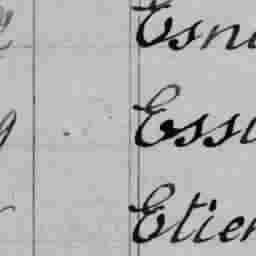 Esn
Ess
Etien